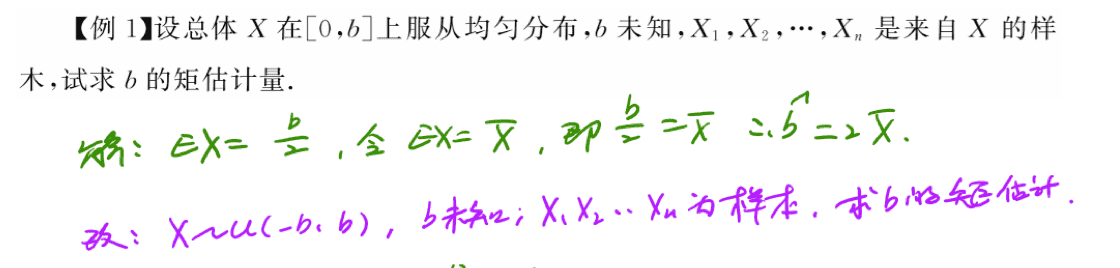 【例 1】设总体 X 在[0,b]上服从均匀分布,b 未知,X₁,X₂,⋯,Xₙ 是来自 X 的样
木,试求 b 的矩估计量.
解: EX= b/2 , 令 EX= X̄ , 即 b/2 = X̄ ∴ b̂ = 2X̄.
改: X~U(-b, b), b未知; X₁ X₂ ‥ Xₙ 为样本, 求b的矩估计.